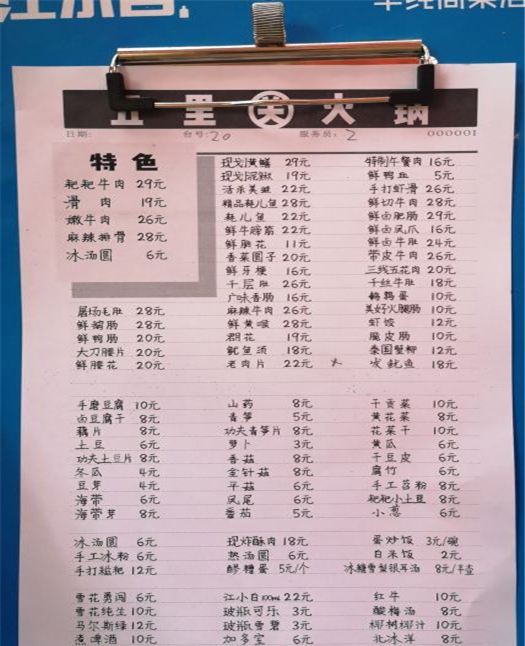 五里关火锅
日期: 台号: 20 服务员: 2 0000001
特色
粑粑牛肉 29元
滑肉 19元
嫩牛肉 26元
麻辣排骨 28元
冰汤圆 6元
屠场毛肚 28元
鲜鹅肠 28元
鲜鸭肠 20元
大刀腰片 20元
鲜腰花 20元
现划黄鳝 29元
现划泥鳅 19元
活杀美蛙 22元
精品耗儿鱼 28元
耗儿鱼 22元
鲜牛蹄筋 22元
鲜脑花 11元
香菜圆子 20元
鲜牙梗 16元
千层肚 26元
广味香肠 16元
麻辣牛肉 26元
鲜黄喉 28元
郡花 19元
鱿鱼须 18元
老肉片 22元
特制午餐肉 16元
鲜鸭血 5元
手打虾滑 26元
鲜切牛肉 28元
鲜卤肥肠 29元
鲜卤凤爪 16元
鲜卤牛肚 24元
带皮牛肉 26元
三线五花肉 20元
千丝牛肚 18元
鹌鹑蛋 10元
美好火腿肠 10元
虾饺 12元
脆皮肠 10元
泰国蟹柳 12元
鱿鱼 18元
手磨豆腐 10元
卤豆腐干 8元
藕片 8元
土豆 6元
功夫土豆片 8元
冬瓜 4元
豆芽 4元
海带 6元
海带芽 8元
山药 8元
青笋 5元
功夫青笋片 8元
萝卜 3元
香菇 8元
金针菇 8元
平菇 6元
凤尾 6元
番茄 5元
干贡菜 10元
黄花菜 8元
花菜干 10元
黄瓜 6元
干豆皮 6元
腐竹 6元
手工苕粉 8元
粑粑小土豆 8元
小葱 6元
冰汤圆 6元
手工冰粉 6元
手打糍粑 12元
现炸酥肉 18元
热汤圆 6元
醪糟蛋 5元/个
蛋炒饭 3元/碗
白米饭 2元
冰糖雪梨银耳汤 8元/扎壶
雪花勇闯 6元
雪花纯生 10元
马尔斯绿 12元
煮啤酒 10元
江小白100ml 22元
玻瓶可乐 3元
玻瓶雪碧 3元
加多宝 6元
红牛 10元
酸梅汤 8元
椰树椰汁 10元
北冰洋 8元